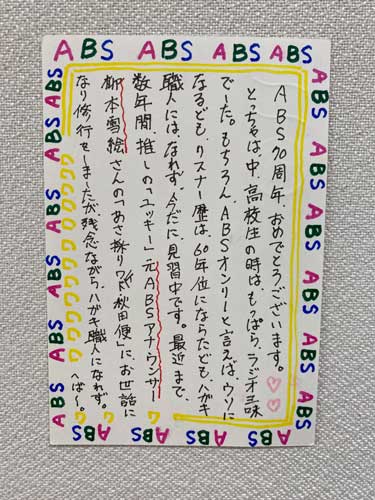 ABS ABS ABS ABS
ABS70周年、おめでとうございます。
とっちゃは中、高校生の時は、もっぱら、ラジオ三昧
でした。もちろん、ABSオンリーと、言えば、ウソに
なるども、リスナー歴は、60年位にならたども、ハガキ
職人には、なれず。今だに、見習中です。最近まで、
数年間、推しの「ユッキー」元ABSアナウンサー
柳本雪絵さんの「あさ採りワイド秋田便」に、お世話に
なり修行をしましたが、残念ながら、ハガキ職人になれず。
へばーっ。
ABS ABS ABS ABS ABS ABS
ABS ABS ABS ABS ABS
ABS ABS ABS ABS ABS ABS